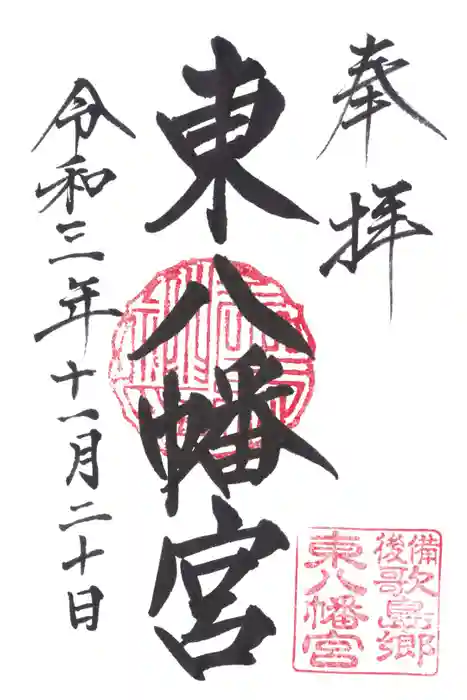 奉拝
東八幡宮
令和三年十一月二十日
備後
歌島郷
東八幡宮